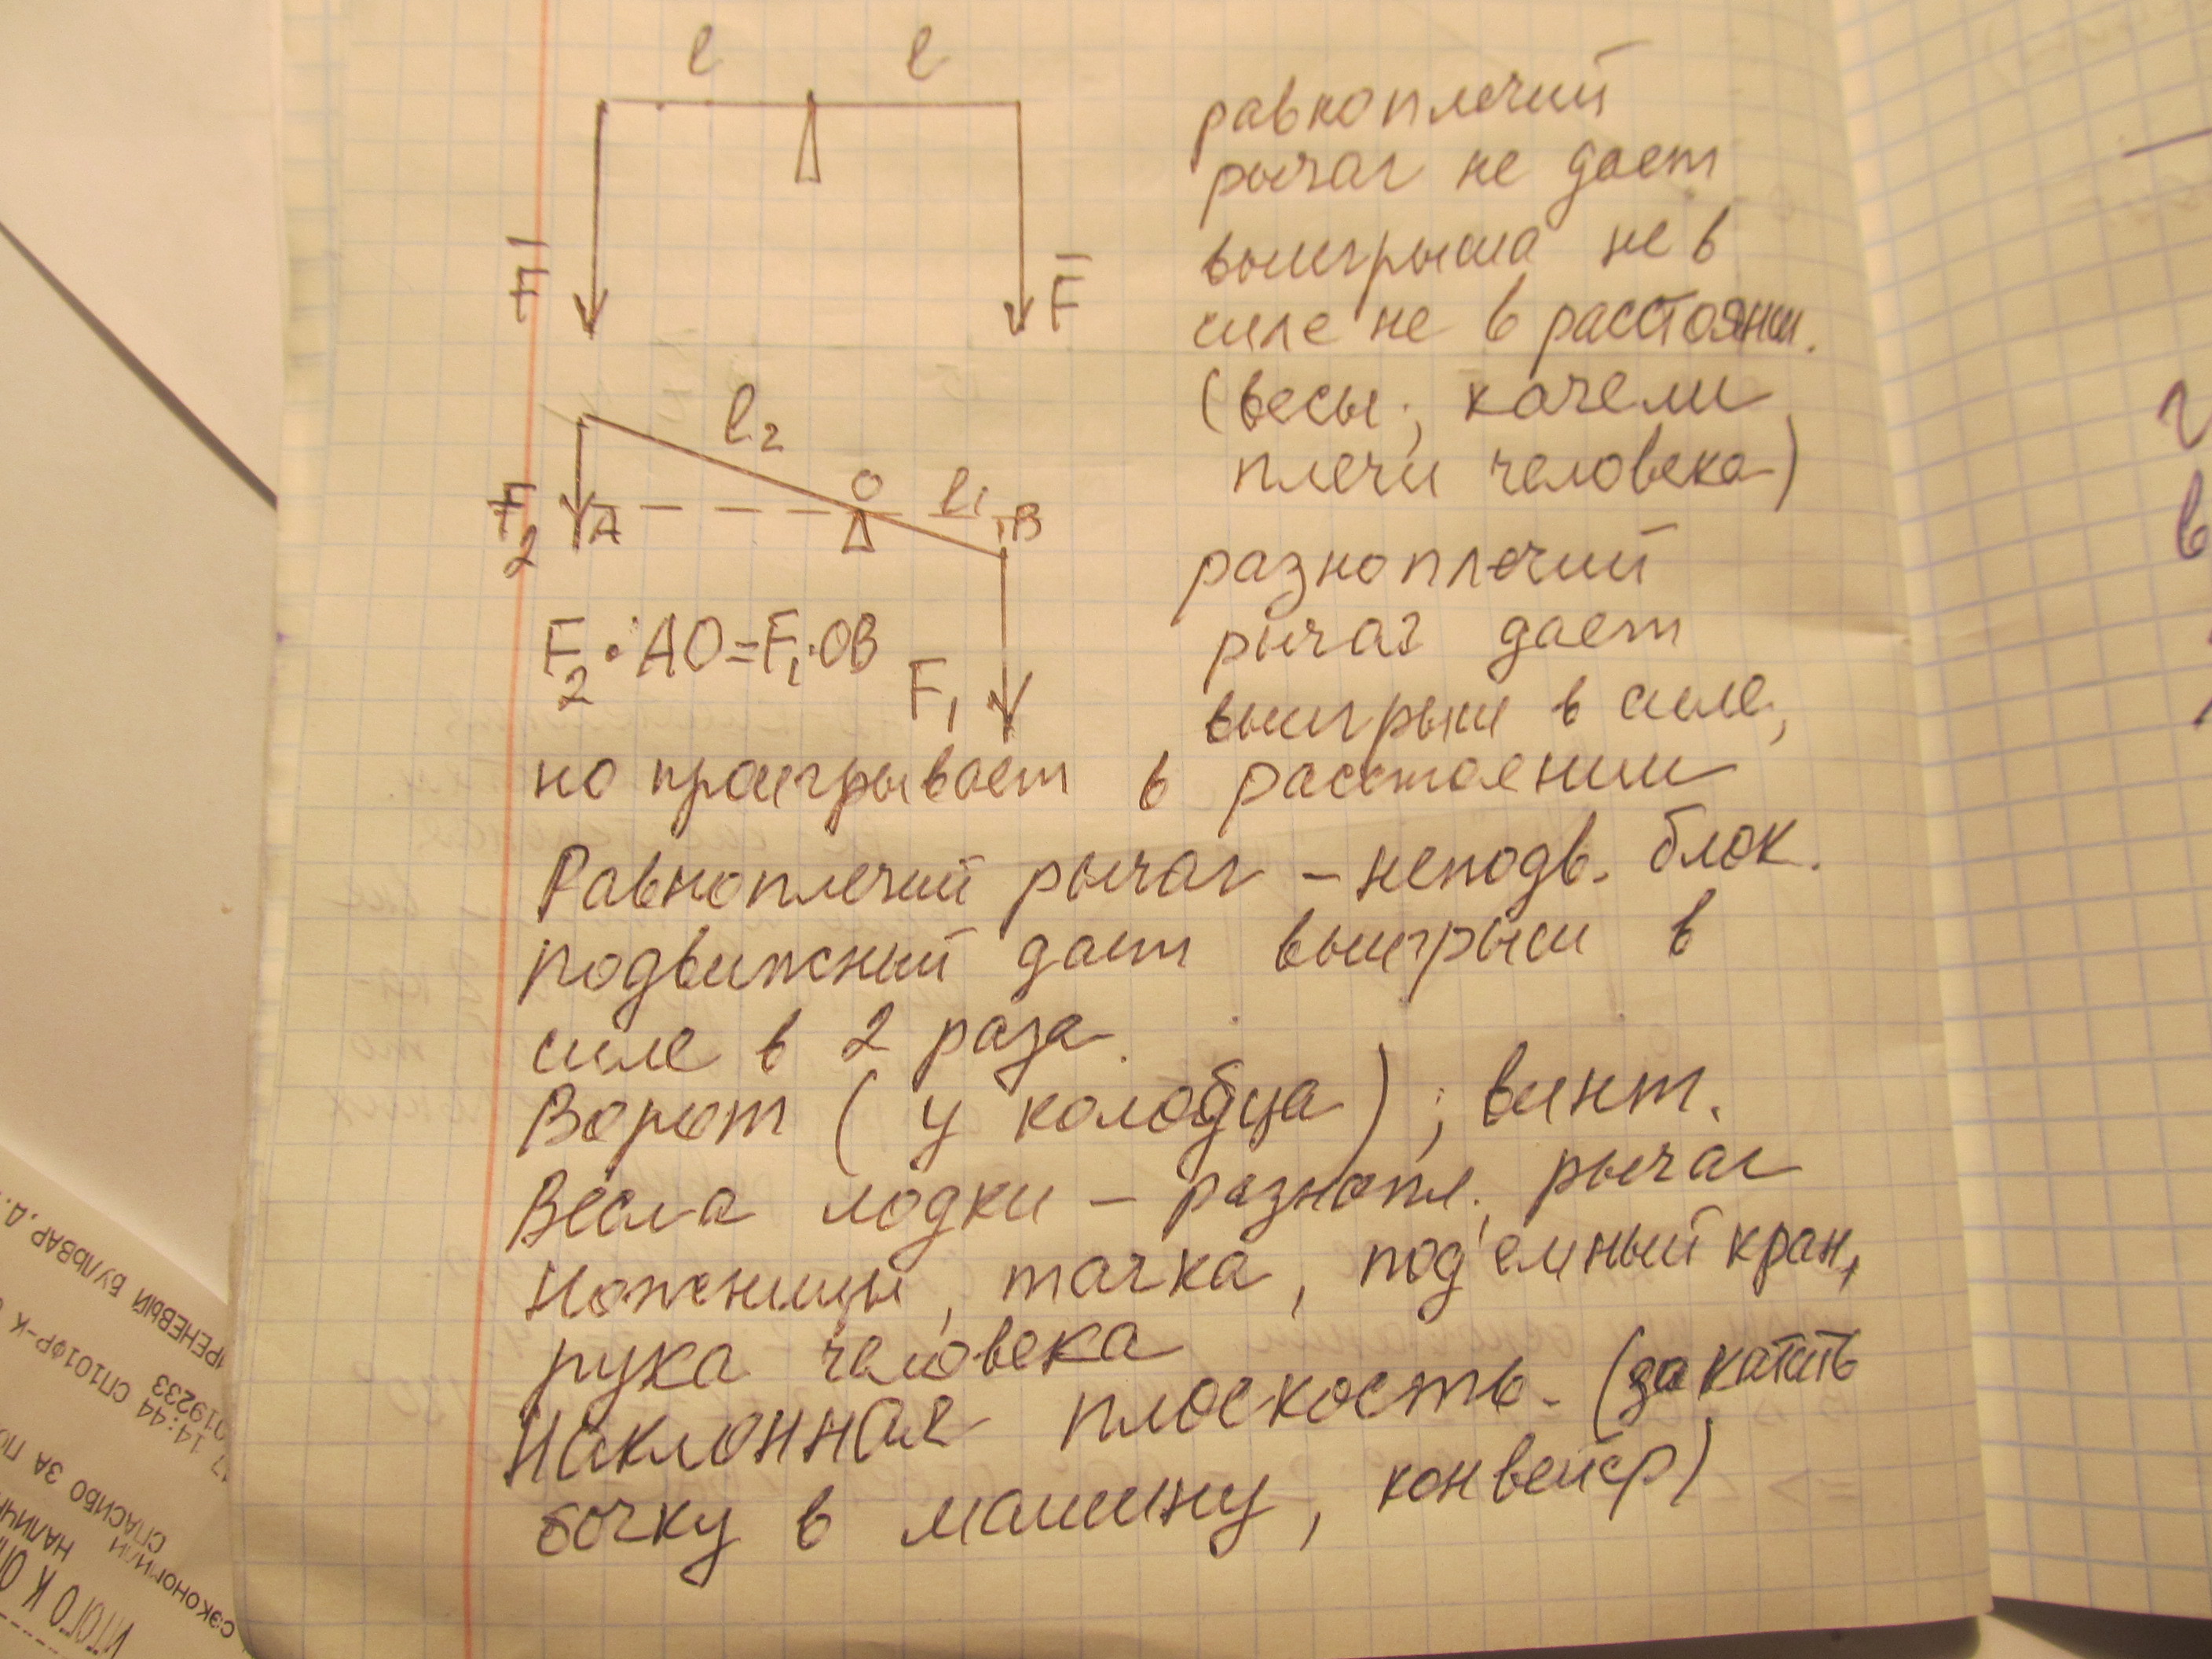 l l
равноплечий
рычаг не дает
выигрыша не в
силе не в расстоянии.
F F
(весы; качели
плечи человека)
l₂
O l₁ B
F₂ A
разноплечий
рычаг дает
F₂·AO=F₁·OB
F₁
выигрыш в силе,
но проигрывает в расстоянии
Равноплечий рычаг – неподв. блок.
подвижный дает выигрыш в
силе в 2 раза.
Ворот (у колодца); винт.
Весла лодки – разнопл. рычаг
Ножницы, тачка, под'емный кран,
рука человека
Наклонная плоскость. (закатить
бочку в машину, конвейер)
РЕНЕВЫЙ БУЛЬВАР, Д.
14:44 СП101ФР-К
019233
СПАСИБО ЗА
НАЛИЧН
ИТОГО К